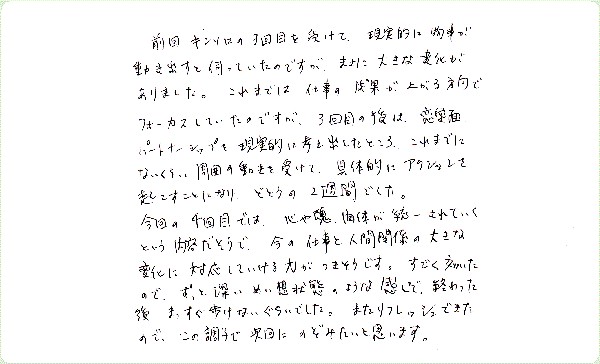 前回 キンソロの3回目を受けて、現実的に物事が
動き出すと伺っていたのですが、まさに大きな変化が
ありました。これまでは仕事の成果が上がる方向で
フォーカスしていたのですが、3回目の後は、恋愛面
パートナーシップを現実的に考え出したところ、これまでに
ないくらい周囲の動きを受けて、具体的にアクションを
起こすことになり、どとうの2週間でした。
今回の4回目では、心や魂、肉体が統一されていく
という内容だそうで、今の仕事と人間関係の大きな
変化に対応していける力がつきそうです。すごく深かった
ので、ずっと深いめい想状態のような感じで、終わった
後、まっすぐ歩けないぐらいでした。またリフレッシュできた
ので、この調子で次回にのぞみたいと思います。